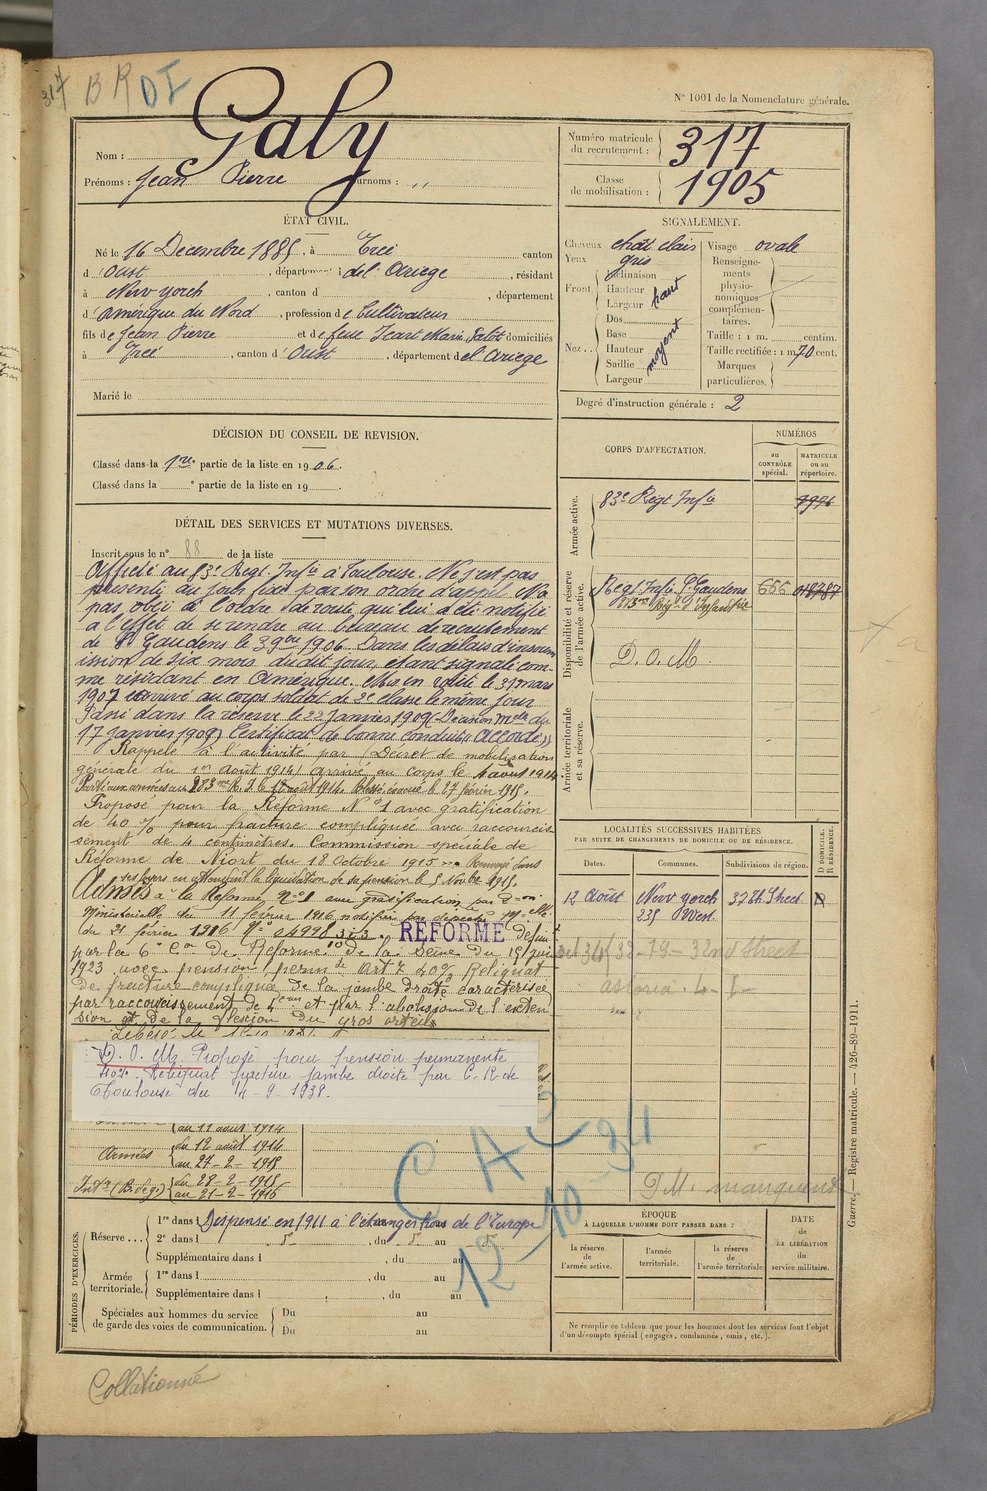 317 BR DI
N° 1001 de la Nomenclature générale.
Nom : Galy
Prénoms : Jean Pierre Surnoms : ,,
Numéro matricule du recrutement : 317
Classe de mobilisation : 1905
ÉTAT CIVIL.
Né le 16 Décembre 1885, à Ercé canton
d'Oust, département de l'Ariège, résidant
à New yorck, canton d , département
d'Amérique du Nord, profession de Cultivateur
fils de Jean Pierre et de feue Icart Marie Talot domiciliés
à Ercé, canton d'Oust, département de l'Ariège
Marié le
SIGNALEMENT.
Cheveux chât clair
Yeux gris
Front Inclinaison
Hauteur haut
Largeur
Nez Dos
Base
Hauteur moyent
Saillie
Largeur
Visage ovale
Renseignements physionomiques complémentaires.
Taille : 1 m. centim.
Taille rectifiée : 1 m 70 cent.
Marques particulières.
Degré d'instruction générale : 2
DÉCISION DU CONSEIL DE REVISION.
Classé dans la 1re partie de la liste en 1906.
Classé dans la e partie de la liste en 19
DÉTAIL DES SERVICES ET MUTATIONS DIVERSES.
Inscrit sous le n° 88 de la liste
Affecté au 83e Régt. Infie à Toulouse. Ne s'est pas
présenté au jour fixé par son ordre d'appel. N'a
pas obéi à l'ordre de route qui lui a été notifié
à l'effet de se rendre au bureau de recrutement
de St Gaudens le 3 9bre 1906. Dans les délais d'insoum
ission de six mois dudit jour, étant signalé com-
me résidant en Amérique. Mis en route le 31 mars
1907 arrivé au corps soldat de 2e classe le même jour
Passé dans la réserve le 22 Janvier 1909 (Décision mlle du
17 janvier 1909) Certificat de bonne conduite "Accordé"
Rappelé à l'activité par Décret de mobilisation
générale du 1er Août 1914 Arrivé au corps le 4 août 1914
Parti aux armées au 283me R.I. le 12 août 1914. Blessé évacué le 27 février 1915.
Proposé pour la Réforme N° 1 avec gratification
de 40 % pour fracture compliquée avec raccourcis
sement de 4 centimètres. Commission spéciale de
Réforme de Niort du 18 Octobre 1915 Renvoyé dans
ses foyers en attendant la liquidation de sa pension le 5 Novbre 1915.
Admis à la Réforme N° 1 avec gratification par Don
Ministérielle du 11 février 1916 notifiée par dépêche Mlle
du 21 février 1916 N° 04998 3i3. RÉFORME défini
par la 6e Con de Réforme de la Seine du 15 juin
1923 avec pension permte Art 7 40% Reliquat
de fracture compliquée de la jambe droite caractérisée
par raccourcissement de 4 cm et par l'abolition de l'exten
sion et de la flexion du gros orteil
D. O. M. Proposé pour pension permanente
40%. Reliquat fracture jambe droite par C. R. de
Toulouse du 14-9-1938.
au 11 août 1914
Armées du 12 août 1914
au 27-2-1915
Intr (B. de g.) du 28-2-1915
au 21-2-1916
CORPS D'AFFECTATION.
NUMÉROS
au CONTRÔLE spécial.
MATRICULE ou au répertoire.
Armée active.
83e Régt Infie
Disponibilité et réserve de l'armée active.
Régt Infie St Gaudens 656 018787
283me Régt d'Infanterie
D. O. M.
Armée territoriale et sa réserve.
LOCALITÉS SUCCESSIVES HABITÉES
PAR SUITE DE CHANGEMENTS DE DOMICILE OU DE RÉSIDENCE.
Dates. Communes. Subdivisions de région. D DOMICILE. R RÉSIDENCE.
12 Août New yorck 37 th. Street D
235 West
32-79-32nd Street
astoria. L-I-
P.M. manquend
CAC
12-10-34
PÉRIODES D'EXERCICES.
Réserve 1re dans l Dispensé en 1911 à l'étranger hors de l'Europe
2e dans l , du au
Supplémentaire dans l , du au
Armée territoriale. 1re dans l , du au
Supplémentaire dans l , du au
Spéciales aux hommes du service de garde des voies de communication. Du au
Du au
ÉPOQUE
À LAQUELLE L'HOMME DOIT PASSER DANS :
la réserve de l'armée active.
l'armée territoriale.
la réserve de l'armée territoriale
DATE de LA LIBÉRATION du service militaire.
Ne remplir ce tableau que pour les hommes dont les services font l'objet
d'un décompte spécial (engagés, condamnés, omis, etc.).
Guerre. — Registre matricule. — 426-89-1911.
Collationné